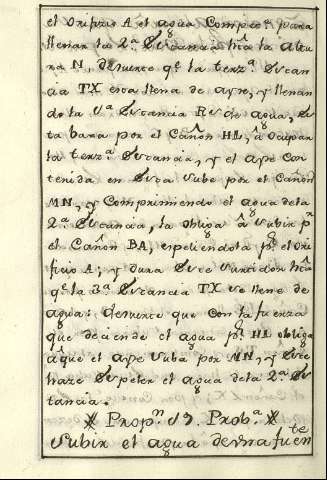 el Orificio A el agua Compete.ᵗᵉ para
llenar la 2.ª Estancia htᵃ la Altu
ra N, desuerte qᵉ la terz.ª Estan
cia TX esta llena de ayre, y llenan
do la 1.ª Estancia RS de agua, Es
ta baxa por el Cañon HL, à ocupar
la terz.ª Estancia, y el ayre con
tenida en Esta sube por el Cañon
MN, y Comprimiendo el agua dela
2.ª Estancia, la obliga à subir pʳ
el Cañon BA, espeliendola pʳ el Ori
ficio A; y dura Este surtidor htᵃ
qᵉ la 3.ª Estancia TX se llene de
agua: desuerte que con la fuerza
que deciende el agua pʳ HL obliga
à que el ayre suba por MN, y Este
haze Espeler el agua dela 2.ª Es
tancia.
Prop.ⁿ 19. Prob.ª
Subir el agua de una fuenᵗᵉ